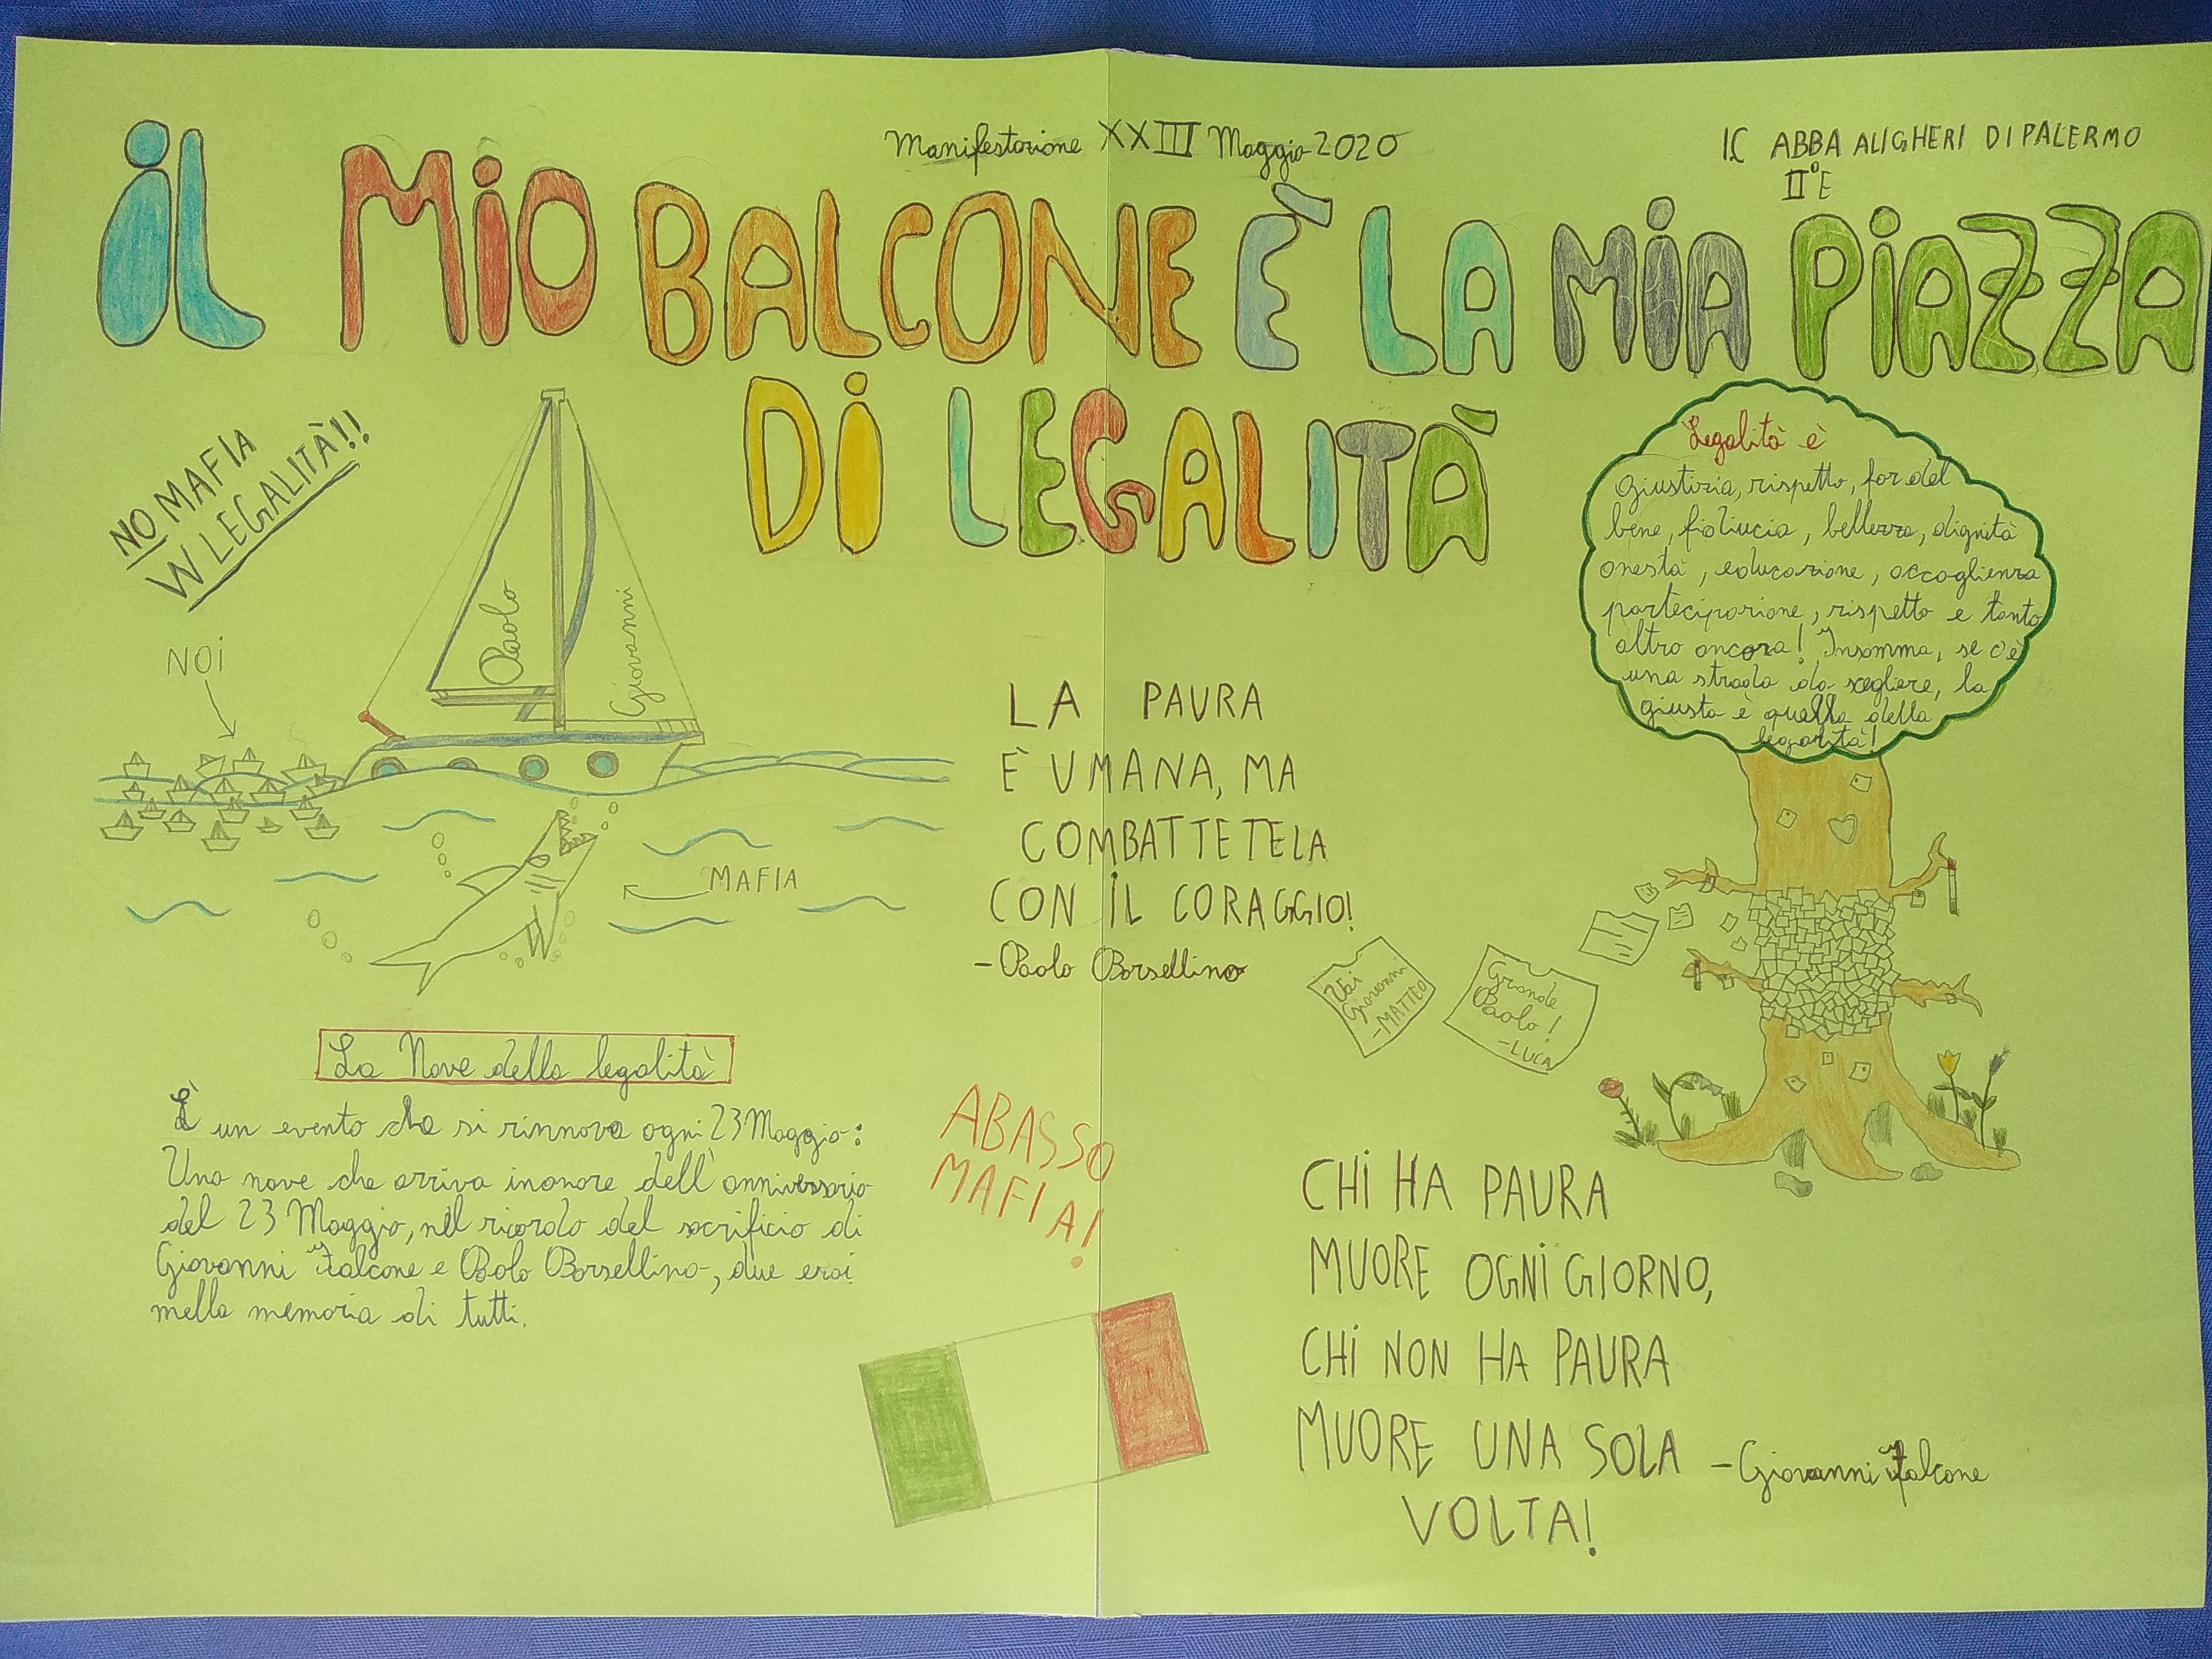 Manifestazione XXIII Maggio 2020
I.C ABBA ALIGHERI DI PALERMO
II°E
iL MiO BALCONE È LA MiA PiAZZA
Di LEGALITÀ
NO MAFIA
W LEGALITÀ!!
NOi
Paolo
Giovanni
MAFIA
LA PAURA
È UMANA, MA
COMBATTETELA
CON iL CORAGGIO!
- Paolo Borsellino
Legalità è
giustizia, rispetto, far del
bene, fiducia, bellezza, dignità
onestà, educazione, accoglienza
partecipazione, rispetto e tanto
altro ancora! Insomma, se c'è
una strada da scegliere, la
giusta è quella della
legalità!
Vai
Giovanni
-MATTEO
Grande
Paolo!
-LUCA
La Nave della legalità
È un evento che si rinnova ogni 23 Maggio:
Una nave che arriva in onore dell'anniversario
del 23 Maggio, nel ricordo del sacrificio di
Giovanni Falcone e Paolo Borsellino, due eroi
nella memoria di tutti.
ABASSO
MAFIA!
CHi HA PAURA
MUORE OGNi GIORNO,
CHi NON HA PAURA
MUORE UNA SOLA
VOLTA!
- Giovanni Falcone